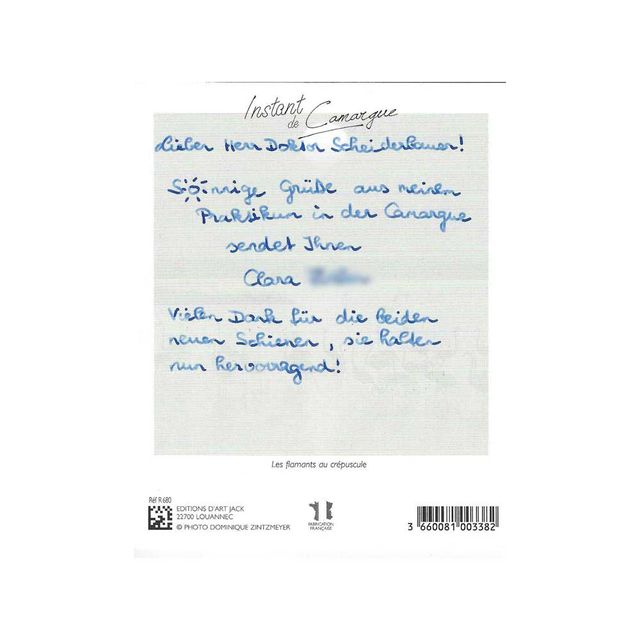 Instant
de Camargue
Lieber Herr Doktor Scheiderbauer!
Sonnige Grüße aus meinem
Praktikum in der Camargue
sendet Ihnen
Clara
Vielen Dank für die beiden
neuen Schienen, sie halten
nun hervorragend!
Les flamants au crépuscule
Réf R 680
EDITIONS D'ART JACK
22700 LOUANNEC
© PHOTO DOMINIQUE ZINTZMEYER
FABRICATION
FRANÇAISE
3 660081 003382